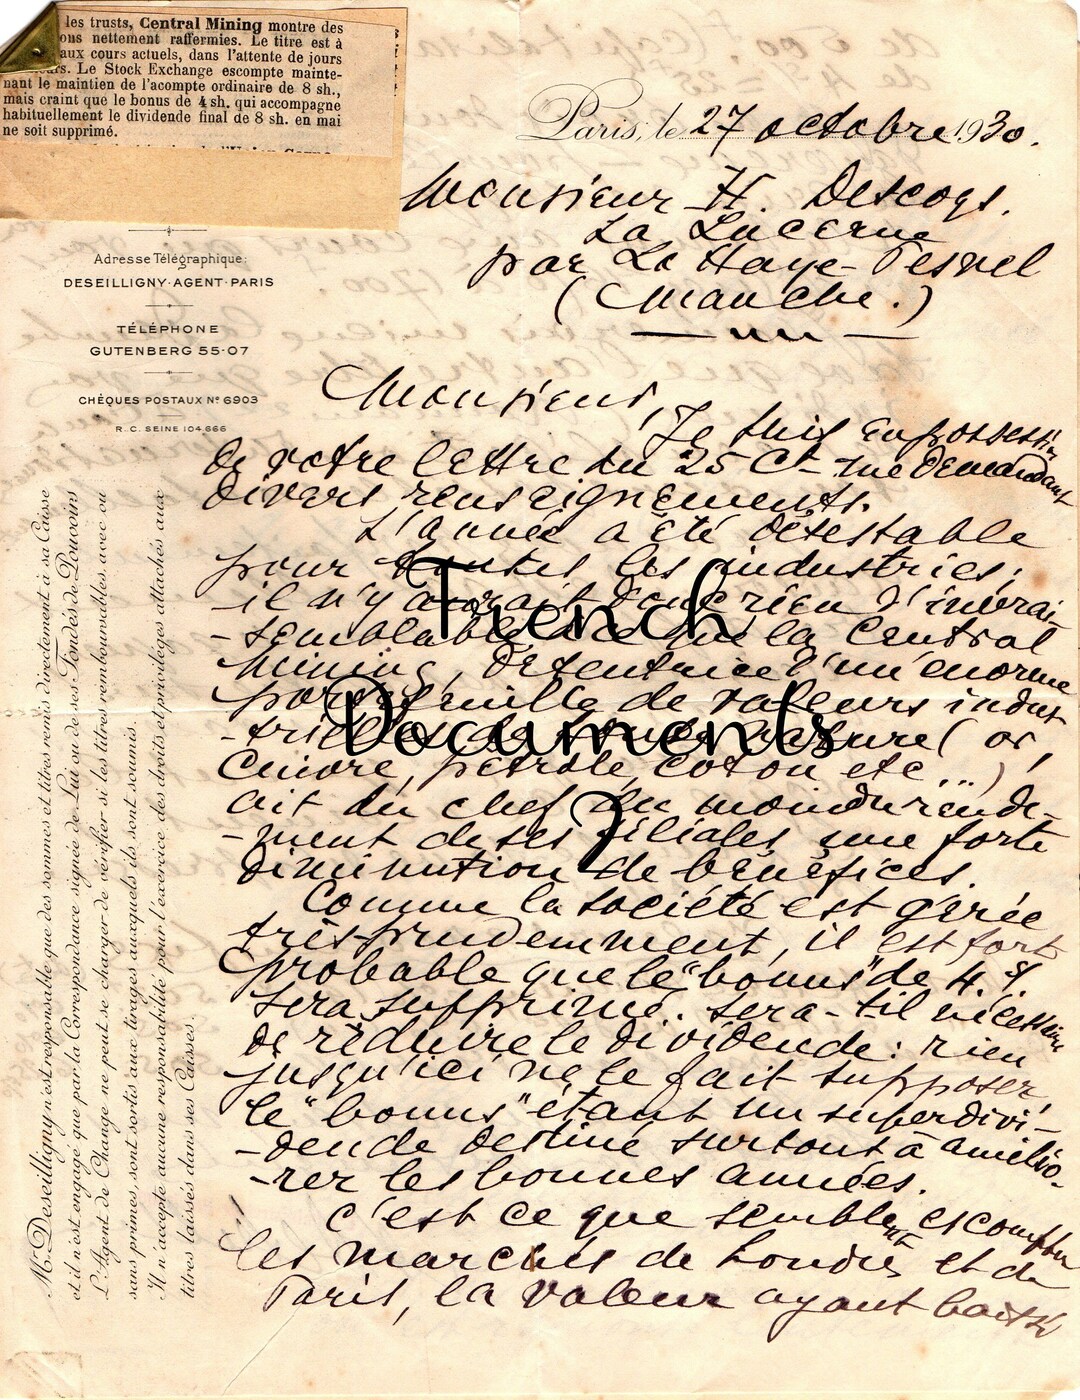 les trusts, Central Mining montre des
ons nettement raffermies. Le titre est à
aux cours actuels, dans l'attente de jours
eurs. Le Stock Exchange escompte mainte-
nant le maintien de l'acompte ordinaire de 8 sh.,
mais craint que le bonus de 4 sh. qui accompagne
habituellement le dividende final de 8 sh. en mai
ne soit supprimé.
Paris, le 27 octobre 1930.
Monsieur H. Descogs.
La Lucerne
par La Haye-Pesnel
(Manche.)
Adresse Télégraphique:
DESEILLIGNY-AGENT-PARIS
TÉLÉPHONE
GUTENBERG 55-07
CHÈQUES POSTAUX Nº 6903
R.C. SEINE 104.666
M. Deseilligny n'est responsable que des sommes et titres remis directement à sa Caisse
et il n'est engagé que par la Correspondance signée de Lui ou de ses Fondés de Pouvoirs
L'Agent de Change ne peut se charger de vérifier si les titres remboursables avec ou
sans primes, sont sortis aux tirages auxquels ils sont soumis.
Il n'accepte aucune responsabilité pour l'exercice des droits et privilèges attachés aux
titres laissés dans ses Caisses.
Monsieur,
Je suis en possession
de votre lettre du 25 Ct me demandant
divers renseignements.
L'année a été détestable
pour toutes les industries;
il n'y aurait donc rien d'invrai-
-semblable à ce que la Central
Mining, détentrice d'un énorme
portefeuille de valeurs indus-
-trielles de toute nature (or,
cuivre, pétrole, coton etc...)
ait du chef du moindre rende-
-ment de ses filiales une forte
diminution de bénéfices.
Comme la société est gérée
très prudemment, il est fort
probable que le "bonus" de 4.s/.
sera supprimé. sera-t-il nécessaire
de réduire le dividende: rien
jusqu'ici ne le fait supposer,
le "bonus" étant un superdivi-
-dende destiné surtout à amélio-
-rer les bonnes années.
C'est ce que semblent escompter
les marchés de Londres et de
Paris, la valeur ayant baissé
French
Documents
2